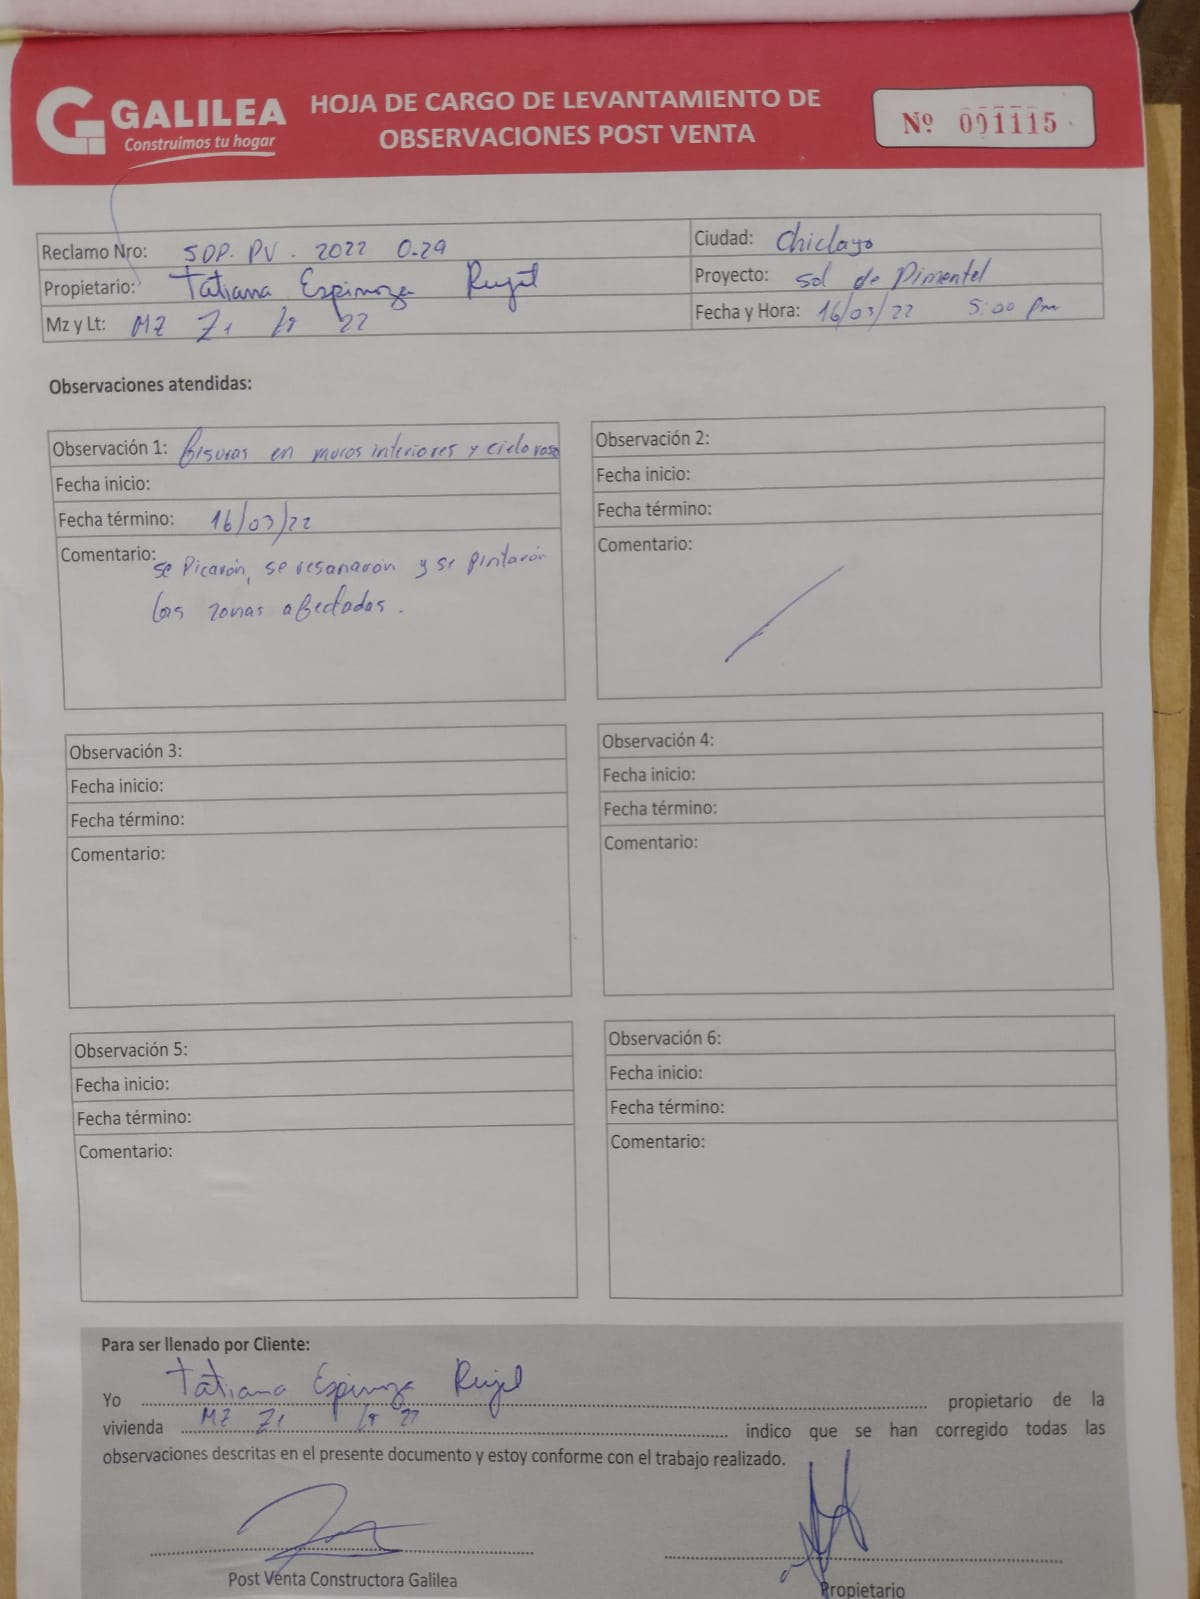 GALILEA
Construimos tu hogar
HOJA DE CARGO DE LEVANTAMIENTO DE
OBSERVACIONES POST VENTA
Nº 001115
Reclamo Nro: SOP. PV. 2022 0.29
Ciudad: Chiclayo
Propietario: Tatiana Espinoza
Proyecto: Sol de Pimentel
Mz y Lt: MZ Z1 lt 22
Fecha y Hora: 16/03/22 5:00 pm
Observaciones atendidas:
Observación 1: fisuras en muros interiores y cielo raso
Fecha inicio:
Fecha término: 16/03/22
Comentario: se Picarón, se resanaron y se pintarón
las zonas afectadas.
Observación 2:
Fecha inicio:
Fecha término:
Comentario:
Observación 3:
Fecha inicio:
Fecha término:
Comentario:
Observación 4:
Fecha inicio:
Fecha término:
Comentario:
Observación 5:
Fecha inicio:
Fecha término:
Comentario:
Observación 6:
Fecha inicio:
Fecha término:
Comentario:
Para ser llenado por Cliente:
Yo Tatiana Espinoza propietario de la
vivienda MZ Z1 lt 22 indico que se han corregido todas las
observaciones descritas en el presente documento y estoy conforme con el trabajo realizado.
Post Venta Constructora Galilea
Propietario